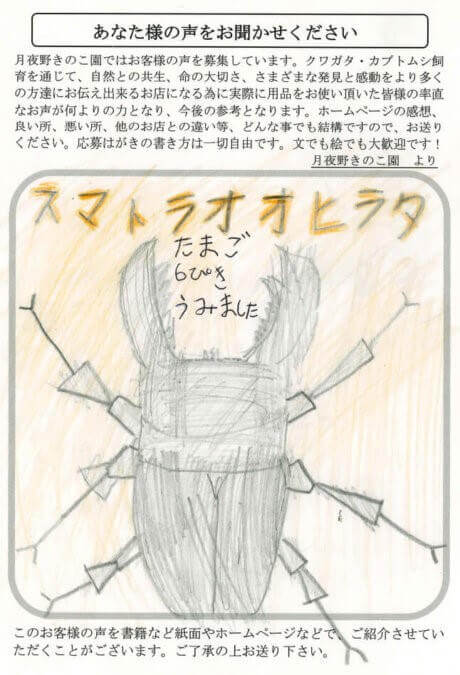 あなた様の声をお聞かせください
月夜野きのこ園ではお客様の声を募集しています。クワガタ・カブトムシ飼
育を通じて、自然との共生、命の大切さ、さまざまな発見と感動をより多く
の方達にお伝え出来るお店になる為に実際に用品をお使い頂いた皆様の率直
なお声が何よりの力となり、今後の参考となります。ホームページの感想、
良い所、悪い所、他のお店との違い等、どんな事でも結構ですので、お送り
ください。応募はがきの書き方は一切自由です。文でも絵でも大歓迎です！
月夜野きのこ園　より
スマトラオオヒラタ
たまご
6ぴき
うみました
このお客様の声を書籍など紙面やホームページなどで、ご紹介させてい
ただくことがございます。ご了承の上お送り下さい。